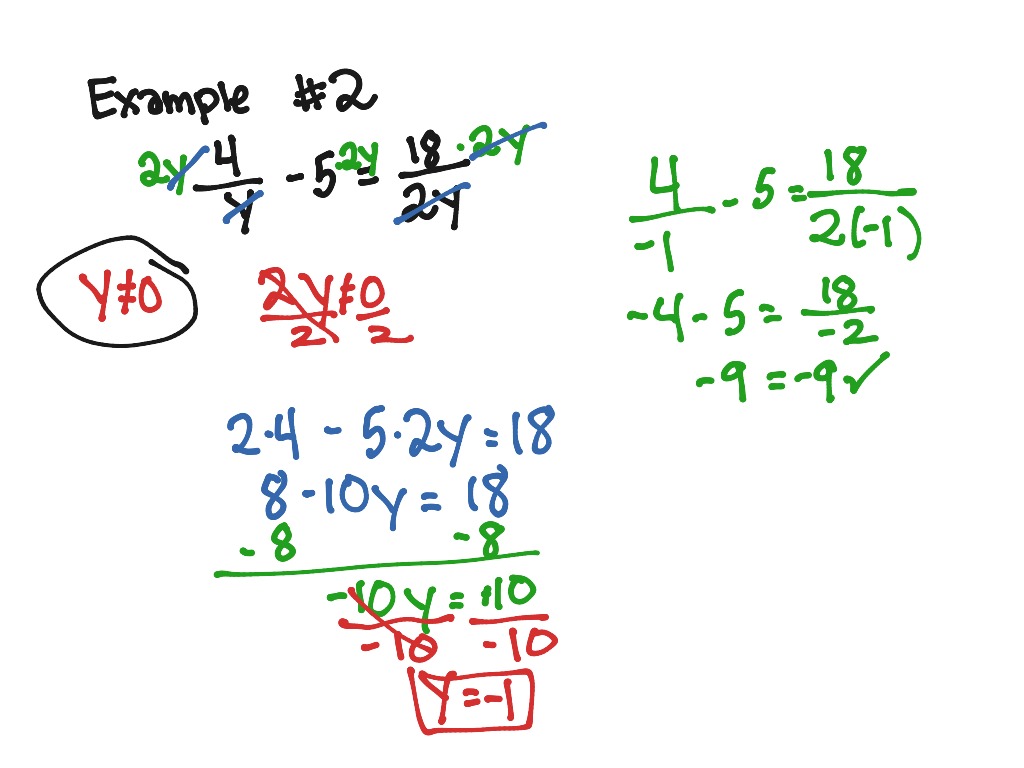 Example #2
2y 4/y - 5 2y = 18/2y · 2y
y ≠ 0
2y/2 ≠ 0/2
2·4 - 5·2y = 18
8 - 10y = 18
-8 -8
-10y/-10 = +10/-10
y = -1
4/-1 - 5 = 18/2(-1)
-4 - 5 = 18/-2
-9 = -9 ✓